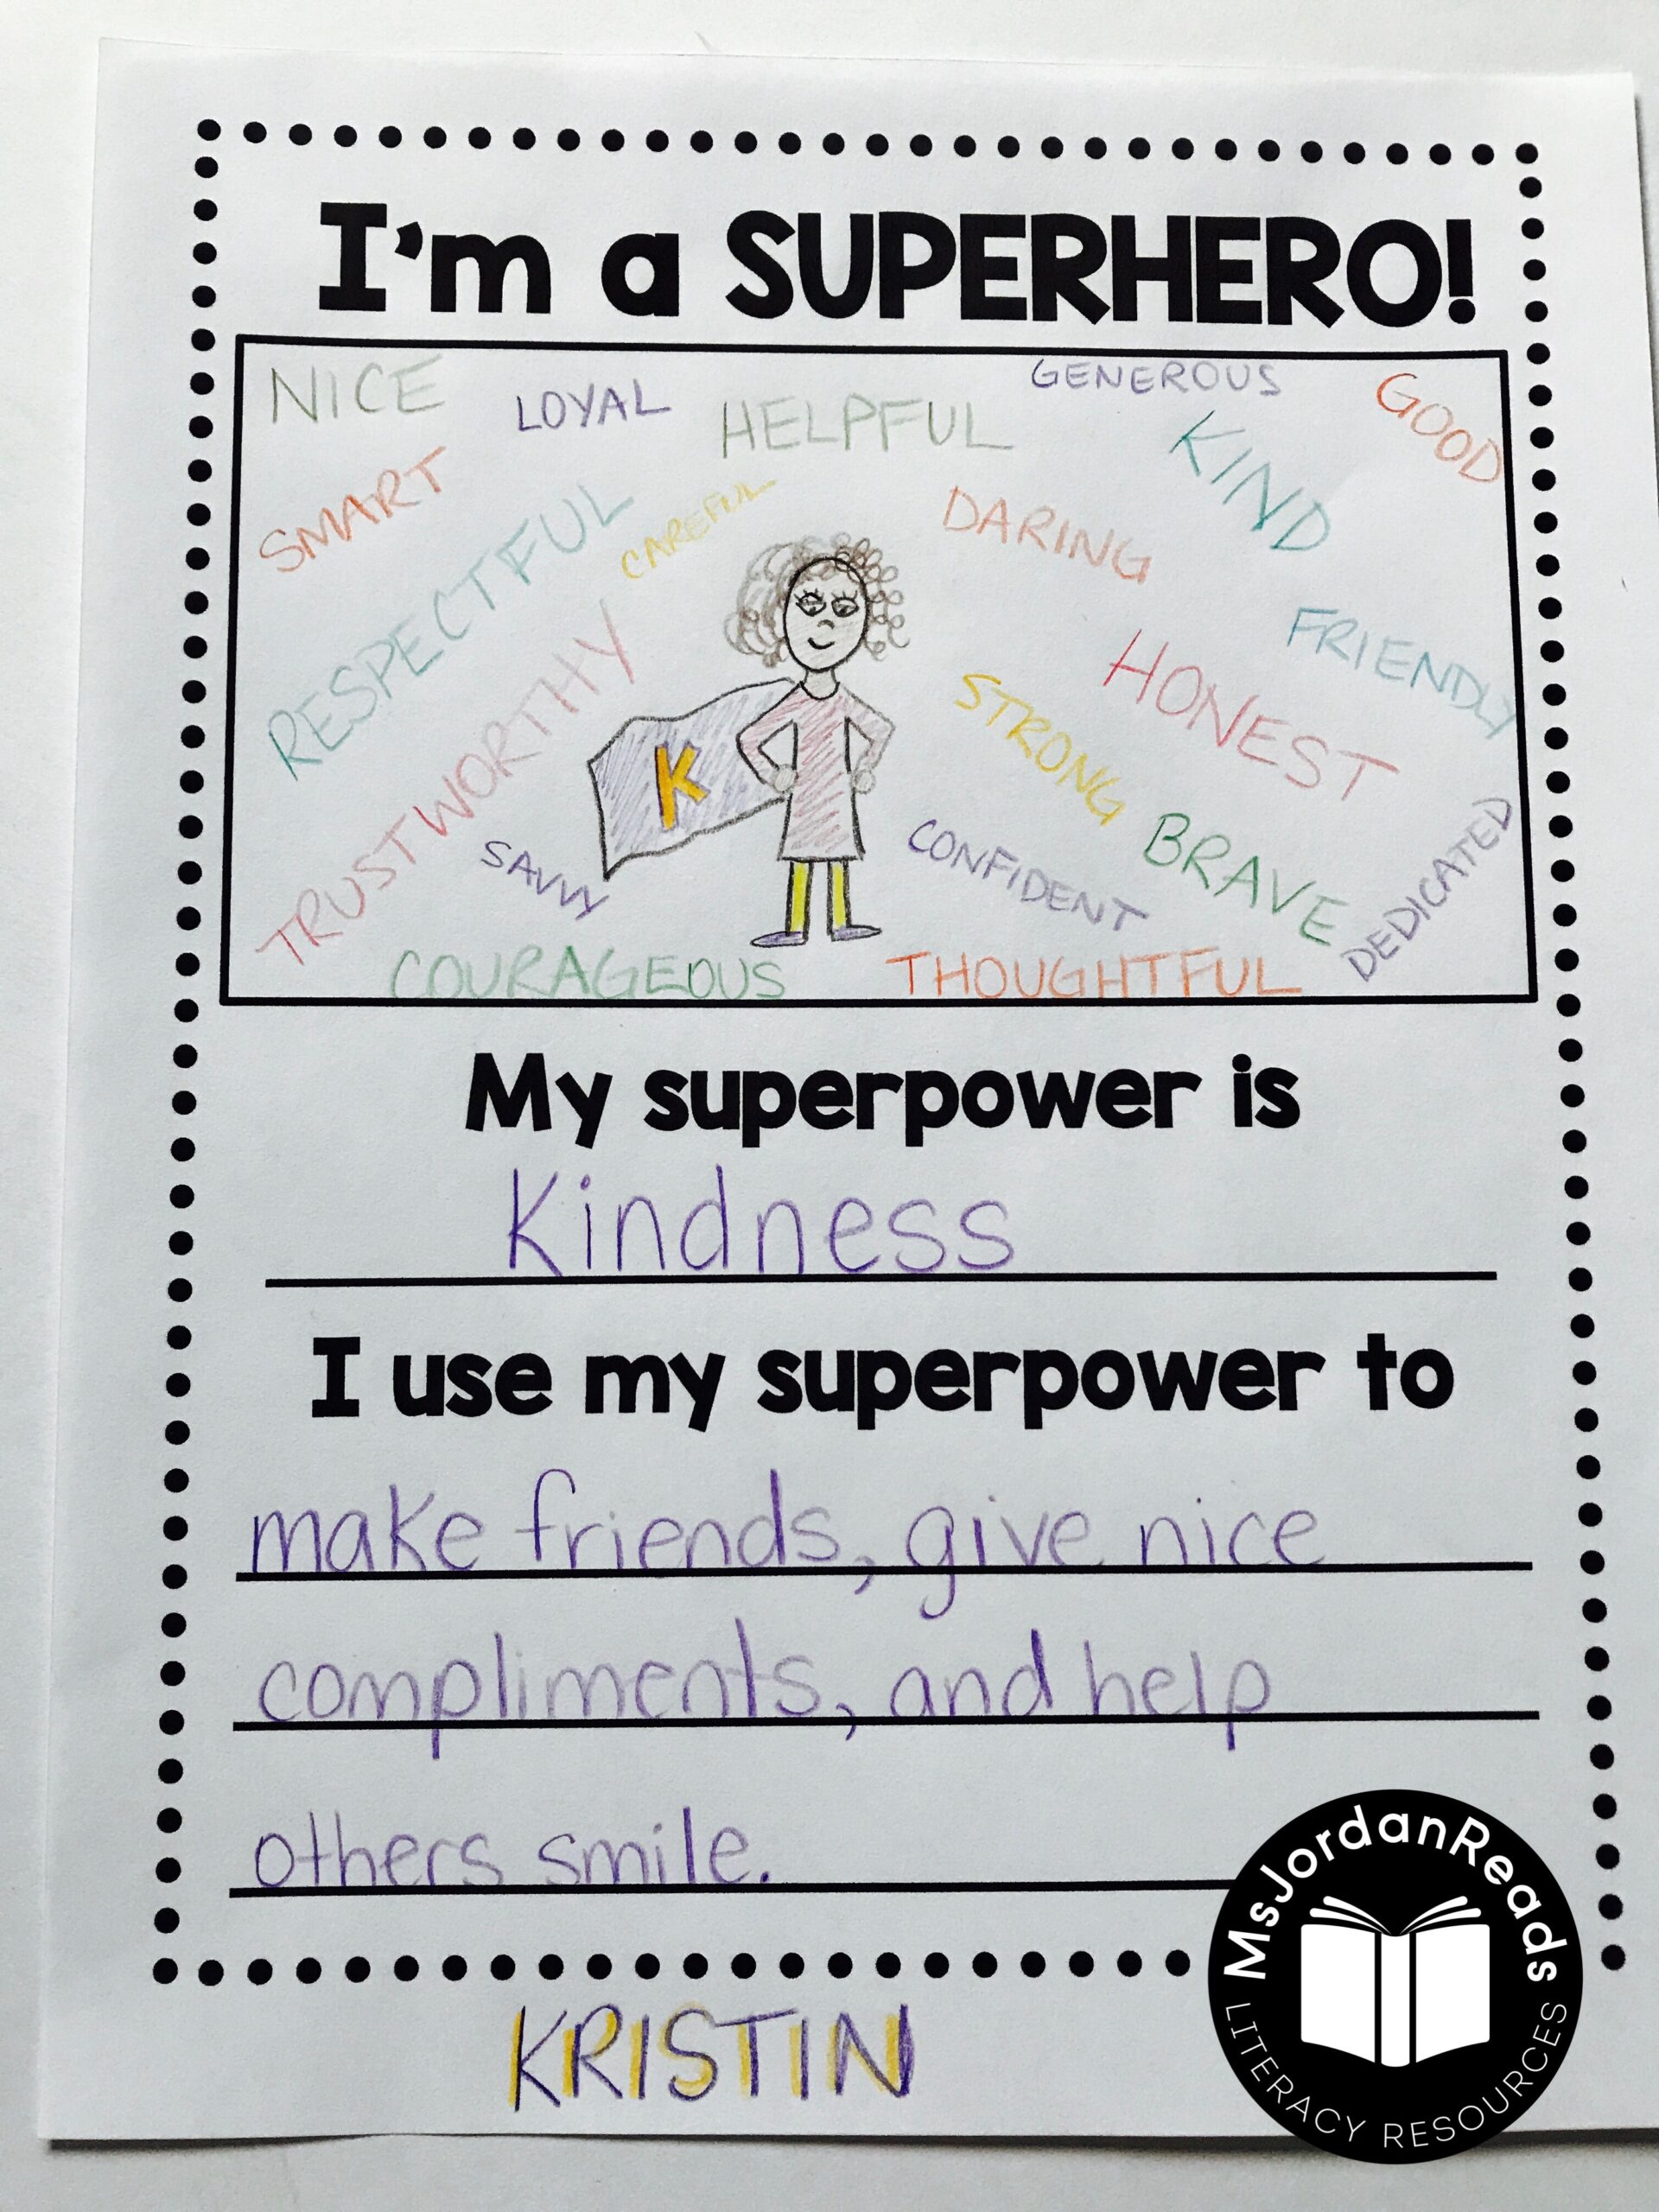 I'm a SUPERHERO!
NICE
LOYAL
HELPFUL
GENEROUS
GOOD
SMART
RESPECTFUL
CAREFUL
DARING
KIND
FRIENDLY
TRUSTWORTHY
K
STRONG
HONEST
SAVVY
CONFIDENT
BRAVE
DEDICATED
COURAGEOUS
THOUGHTFUL
My superpower is
Kindness
I use my superpower to
make friends, give nice
compliments, and help
others smile.
KRISTIN
MsJordanReads
LITERACY RESOURCES